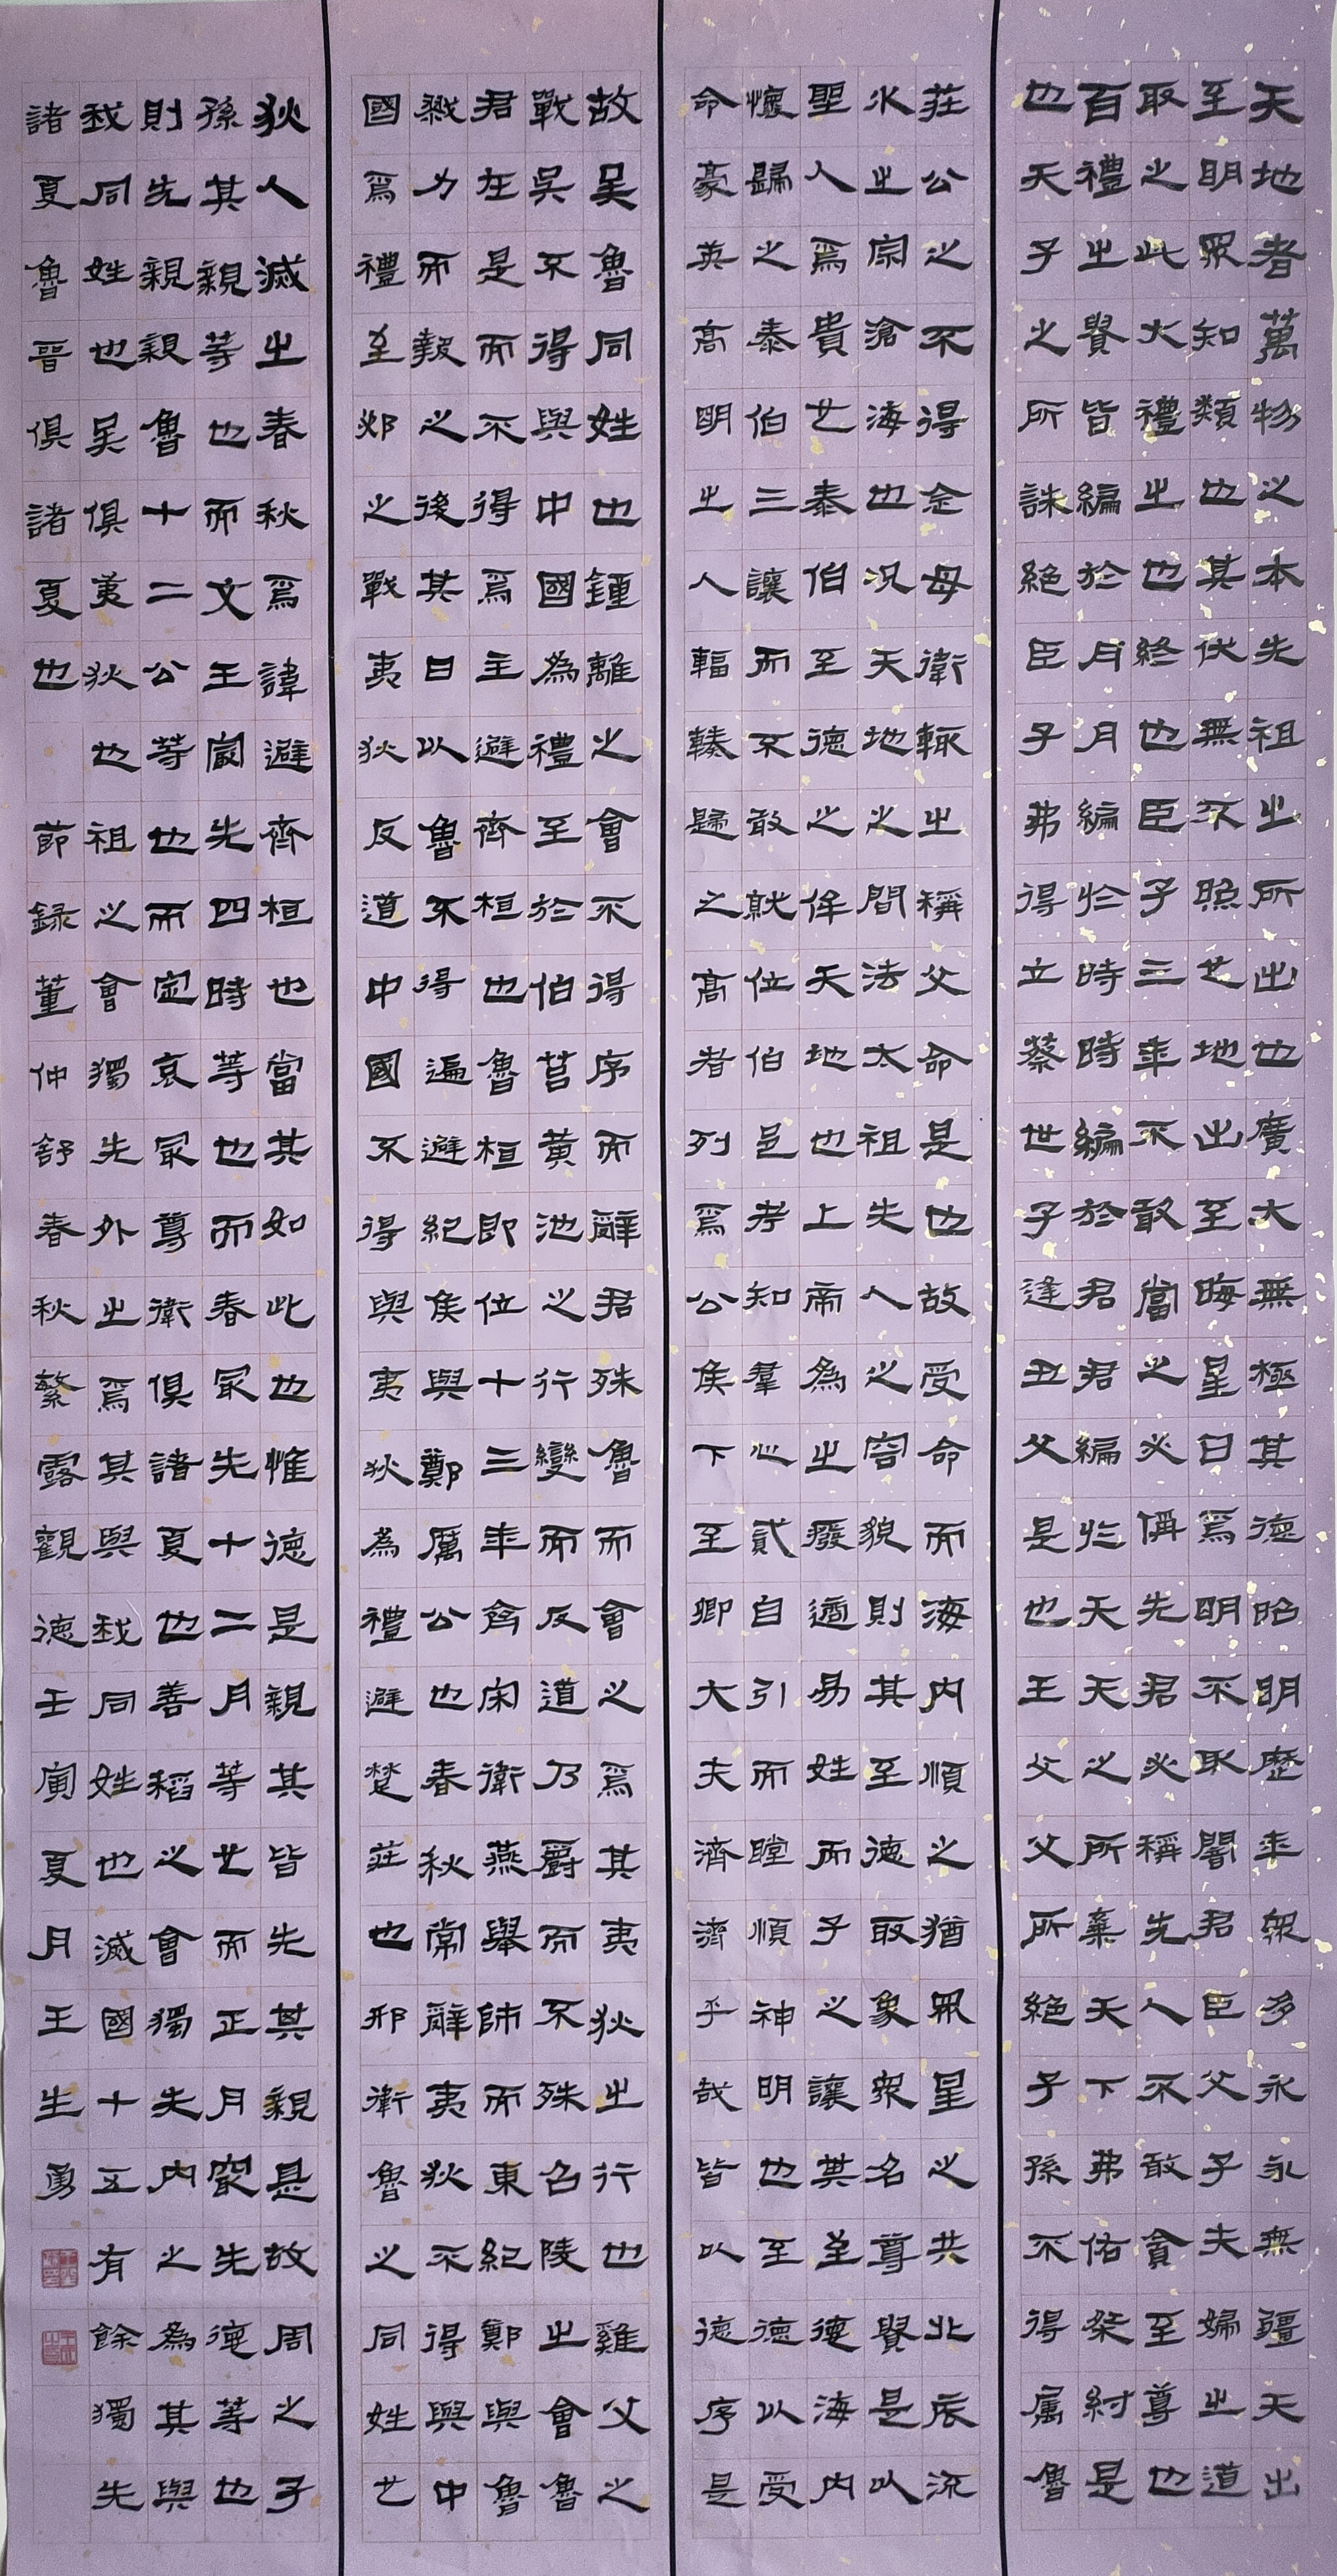 天地者萬物之本先祖之所出也廣大無極其德昭明歷年衆多永永無疆天出
至明眾知類也其伏無不照也地出至晦星日爲明不敢闇君臣父子夫婦之道
取之此大禮之也終也臣子三年不敢當之必偁先君必稱先人不敢貪至尊也
百禮之貴皆編於月月編於時時編於君君編於天天之所棄天下弗佑桀紂是
也天子之所誅絕臣子弗得立蔡世子逢丑父是也王父父所絕子孫不得屬魯
莊公之不得念母衛輒之稱父命是也故受命而海内順之猶眾星之共北辰流
水之宗滄海也况天地之間法太祖先人之容貌則其至德取象衆名尊貴是以
聖人爲貴也泰伯至德之侔天地也上帝為之廢適易姓而子之讓其至德海内
懷歸之泰伯三讓而不敢就位伯邑考知羣心貳自引而瞠順神明也至德以受
命豪英高明之人輻輳歸之高者列爲公侯下至卿大夫濟濟乎哉皆以德序是
故吴魯同姓也鍾離之會不得序而辭君殊魯而會之爲其夷狄之行也雞父之
戰吴不得與中國為禮至於伯莒黄池之行變而反道乃爵而不殊召陵之會魯
君在是而不得爲主避齊桓也魯桓即位十三年齊宋衛燕舉師而東紀鄭與魯
戮力而報之後其日以魯不得遍避紀侯與鄭厲公也春秋常辭夷狄不得與中
國爲禮至邲之戰夷狄反道中國不得與夷狄為禮避楚莊也邢衛魯之同姓也
狄人滅之春秋爲諱避齊桓也當其如此也惟德是親其皆先其親是故周之子
孫其親等也而文王最先四時等也而春最先十二月等也而正月最先德等也
則先親親魯十二公等也而定哀最尊衛俱諸夏也善稻之會獨先内之為其與
我同姓也吴俱夷狄也祖之會獨先外之爲其與我同姓也滅國十五有餘獨先
諸夏魯晋俱諸夏也 節録董仲舒春秋繁露觀德壬寅夏月王生勇